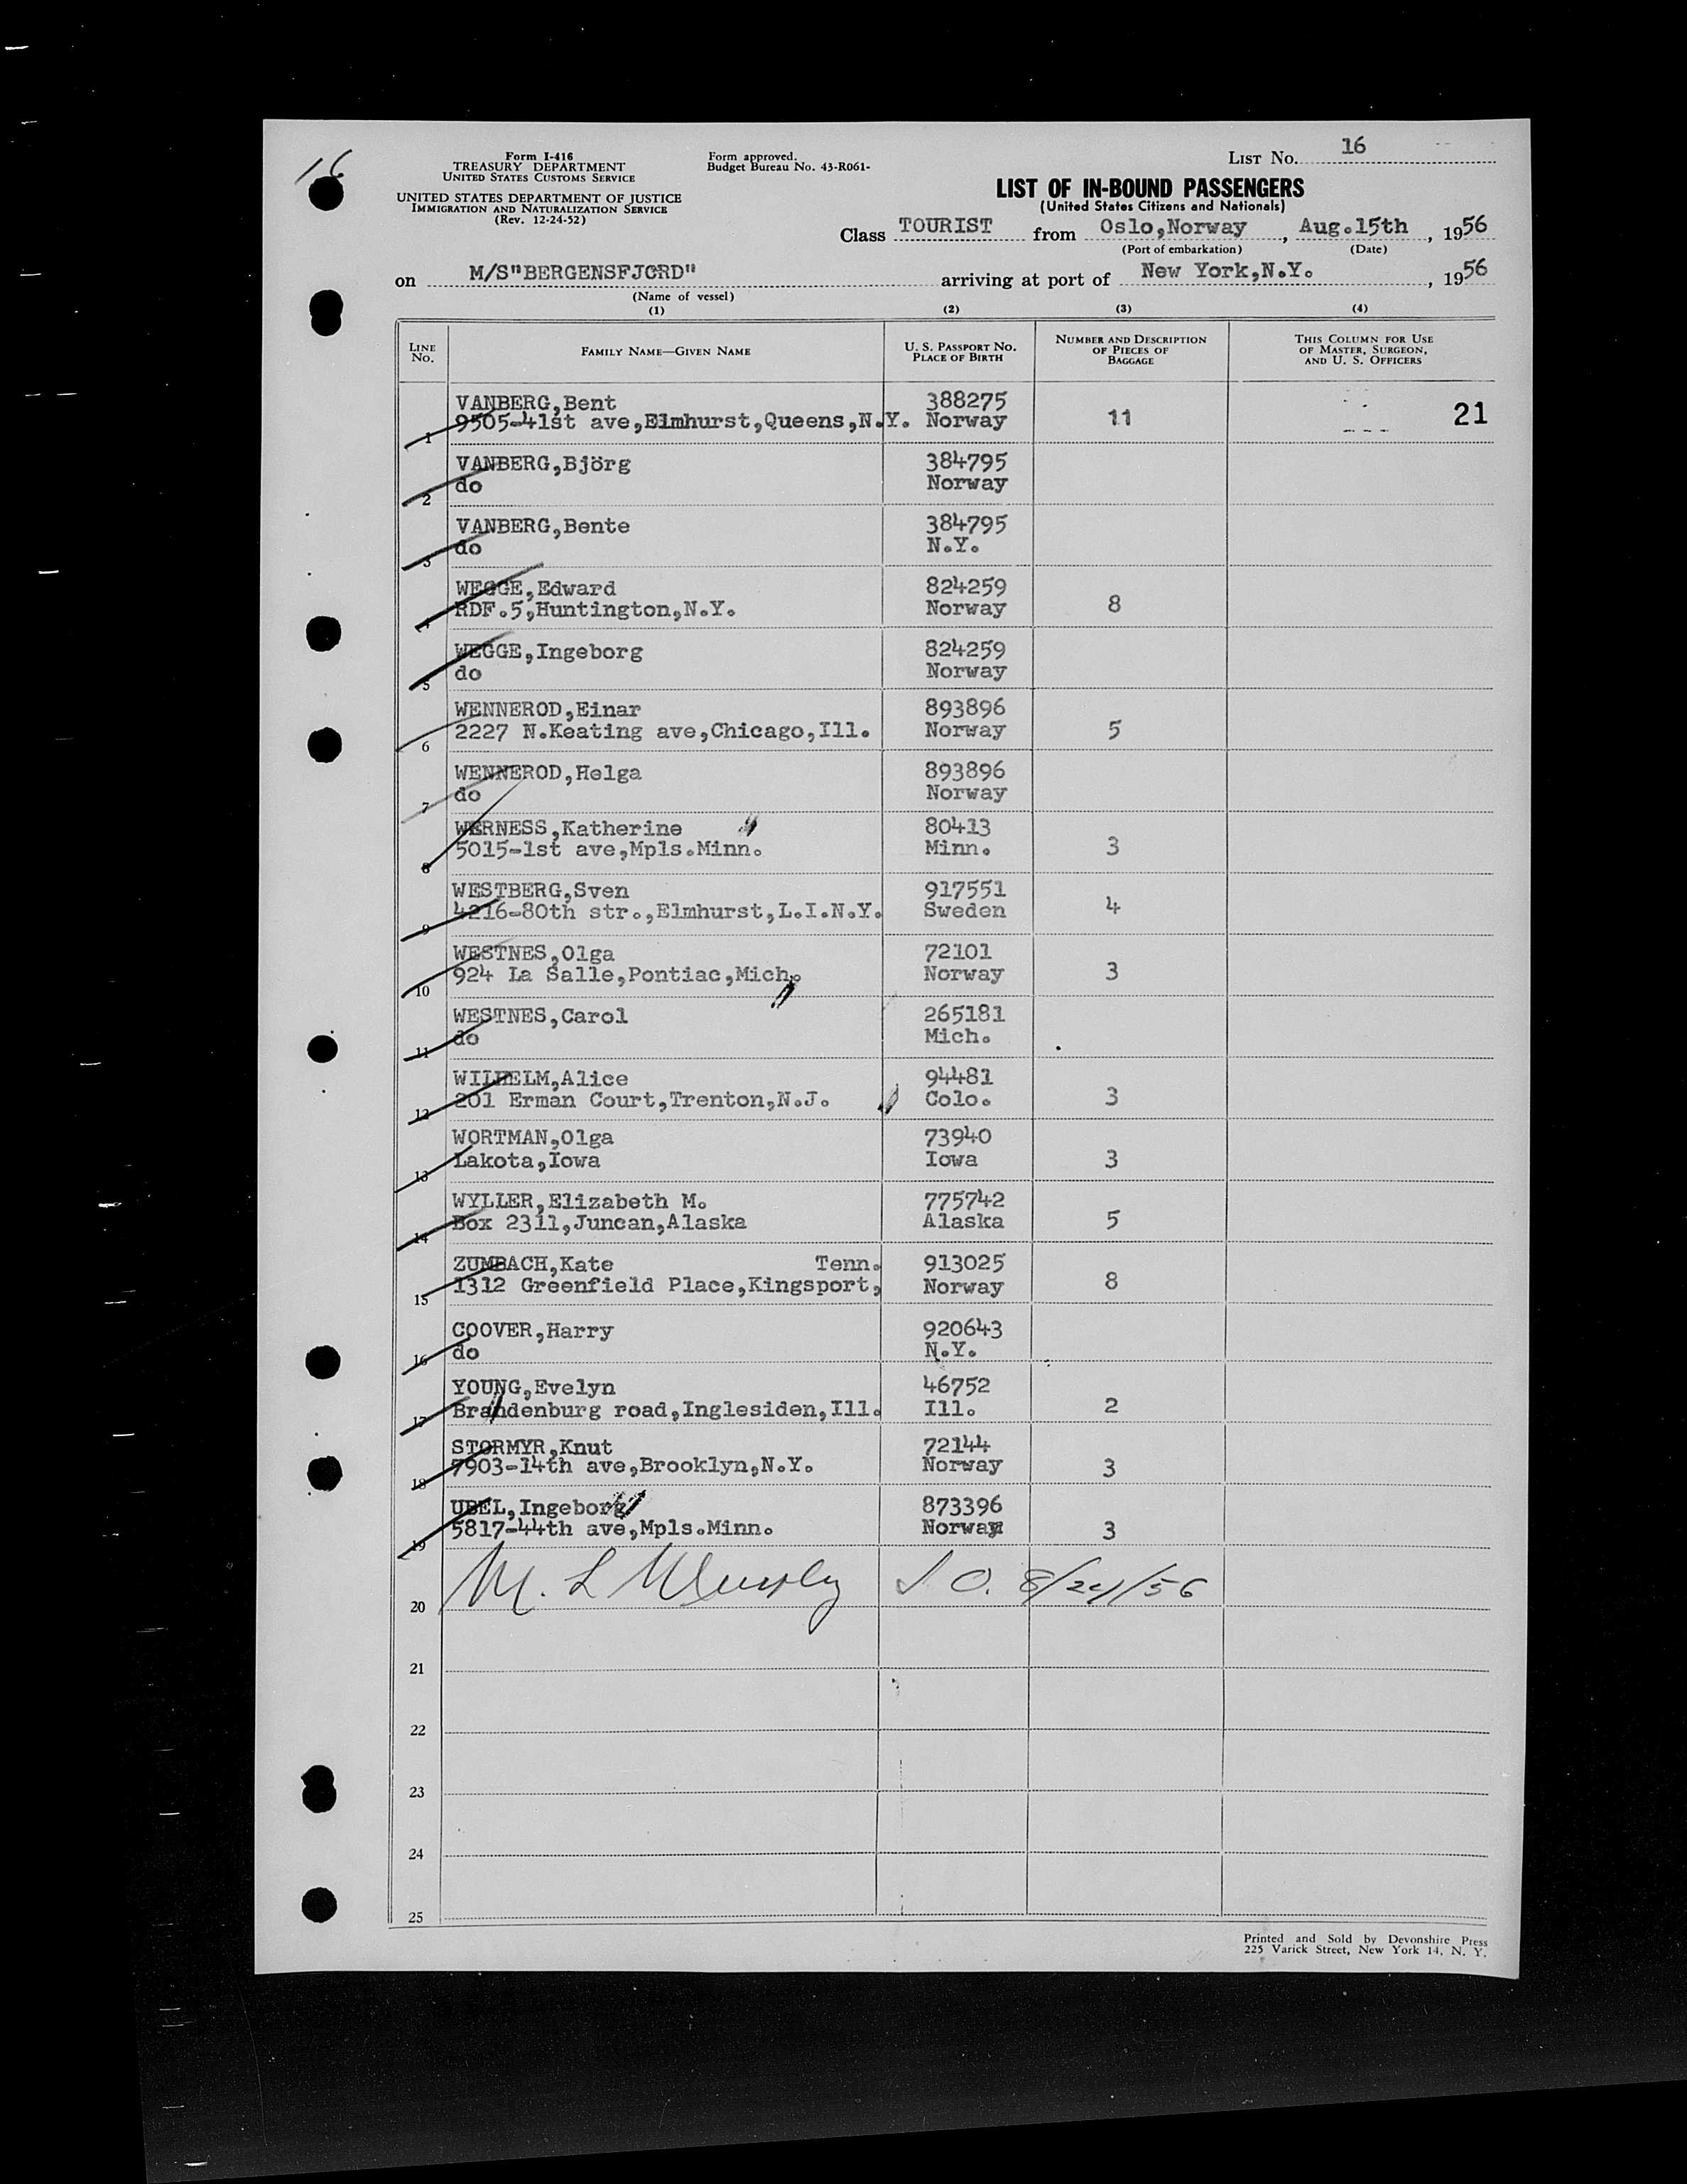 16
Form I-416
TREASURY DEPARTMENT
UNITED STATES CUSTOMS SERVICE
UNITED STATES DEPARTMENT OF JUSTICE
IMMIGRATION AND NATURALIZATION SERVICE
(Rev. 12-24-52)
Form approved.
Budget Bureau No. 43-R061-
LIST No. 16
LIST OF IN-BOUND PASSENGERS
(United States Citizens and Nationals)
Class TOURIST from Oslo,Norway, Aug.15th, 1956
(Port of embarkation) (Date)
on M/S"BERGENSFJORD" arriving at port of New York,N.Y., 1956
(Name of vessel)
(1) (2) (3) (4)
LINE No. FAMILY NAME—GIVEN NAME U. S. PASSPORT No. PLACE OF BIRTH NUMBER AND DESCRIPTION OF PIECES OF BAGGAGE THIS COLUMN FOR USE OF MASTER, SURGEON, AND U. S. OFFICERS
VANBERG,Bent 388275
1 9505-41st ave,Elmhurst,Queens,N.Y. Norway 11 21
VANBERG,Björg 384795
2 do Norway
VANBERG,Bente 384795
3 do N.Y.
WEGGE,Edward 824259
4 RDF.5,Huntington,N.Y. Norway 8
WEGGE,Ingeborg 824259
5 do Norway
WENNEROD,Einar 893896
6 2227 N.Keating ave,Chicago,Ill. Norway 5
WENNEROD,Helga 893896
7 do Norway
WERNESS,Katherine 80413
8 5015-1st ave,Mpls.Minn. Minn. 3
WESTBERG,Sven 917551
9 4216-80th str.,Elmhurst,L.I.N.Y. Sweden 4
WESTNES,Olga 72101
10 924 La Salle,Pontiac,Mich. Norway 3
WESTNES,Carol 265181
11 do Mich.
WILHELM,Alice 94481
12 201 Erman Court,Trenton,N.J. Colo. 3
WORTMAN,Olga 73940
13 Lakota,Iowa Iowa 3
WYLLER,Elizabeth M. 775742
14 Box 2311,Juncan,Alaska Alaska 5
ZUMBACH,Kate Tenn. 913025
15 1312 Greenfield Place,Kingsport, Norway 8
COOVER,Harry 920643
16 do N.Y.
YOUNG,Evelyn 46752
17 Brandenburg road,Inglesiden,Ill. Ill. 2
STORMYR,Knut 72144
18 7903-14th ave,Brooklyn,N.Y. Norway 3
UBEL,Ingeborg 873396
19 5817-44th ave,Mpls.Minn. Norway 3
20 M. L 8/24/56
21
22
23
24
25
Printed and Sold by Devonshire Press
225 Varick Street, New York 14, N. Y.